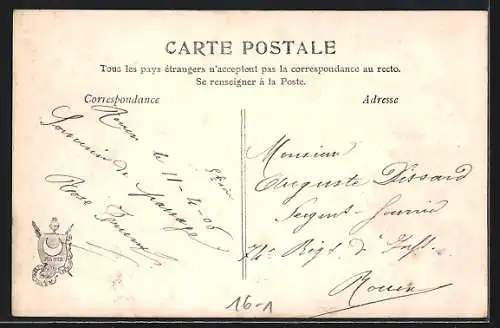 CARTE POSTALE
Tous les pays étrangers n'acceptent pas la correspondance au recto.
Se renseigner à la Poste.
Correspondance
Adresse
Rouen le 11-4-06
Souvenir de passage
Rose
Monsieur
Auguste Dissard
Sergent-fourrier
74e Régt d'Inft.
Rouen
16-1